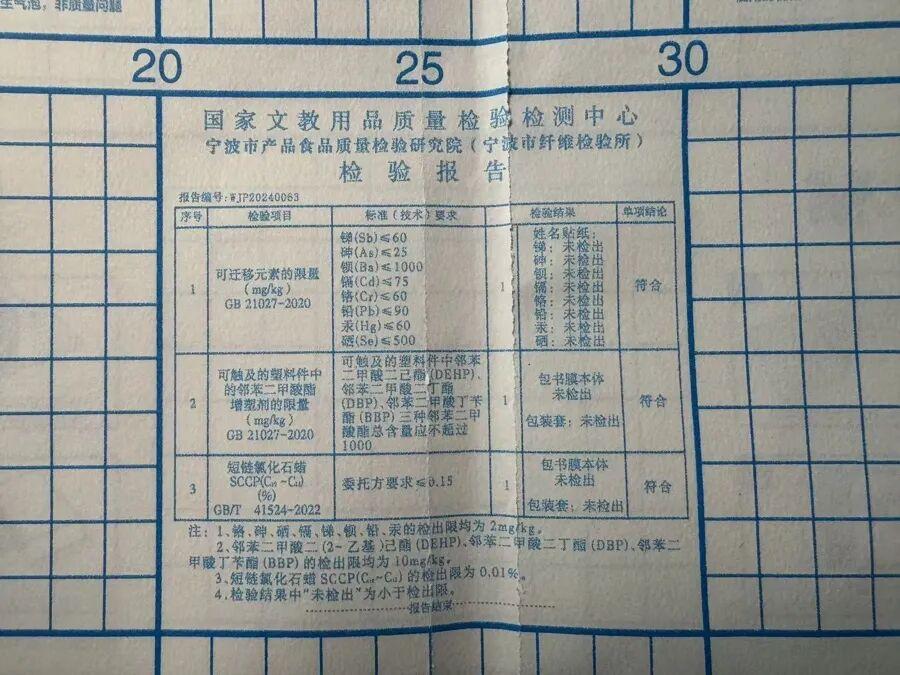 生气泡，非质量问题
20 25 30
国家文教用品质量检验检测中心
宁波市产品食品质量检验研究院（宁波市纤维检验所）
检验报告
报告编号:WJP20240063
序号 检验项目 标准（技术）要求 检验结果 单项结论
1
可迁移元素的限量
(mg/kg)
GB 21027-2020
锑(Sb)≤60
砷(As)≤25
钡(Ba)≤1000
镉(Cd)≤75
铬(Cr)≤60
铅(Pb)≤90
汞(Hg)≤60
硒(Se)≤500
1
姓名贴纸:
锑: 未检出
砷: 未检出
钡: 未检出
镉: 未检出
铬: 未检出
铅: 未检出
汞: 未检出
硒: 未检出
符合
2
可触及的塑料件中
的邻苯二甲酸酯
增塑剂的限量
(mg/kg)
GB 21027-2020
可触及的塑料件中邻苯
二甲酸二己酯(DEHP)、
邻苯二甲酸二丁酯
(DBP)、邻苯二甲酸丁苄
酯(BBP)三种邻苯二甲
酸酯总含量应不超过
1000
1
包书膜本体
未检出
包装套: 未检出
符合
3
短链氯化石蜡
(%)
GB/T 41524-2022
委托方要求≤0.15
1
包书膜本体
未检出
包装套: 未检出
符合
注: 1、铬、砷、硒、镉、锑、钡、铅、汞的检出限均为2mg/kg。
2、邻苯二甲酸二(2-乙基)己酯(DEHP)、邻苯二甲酸二丁酯(DBP)、邻苯二
甲酸丁苄酯(BBP)的检出限均为10mg/kg。
3、短链氯化石蜡SCCP 的检出限为0.01%。
4.检验结果中"未检出"为小于检出限。
报告结束